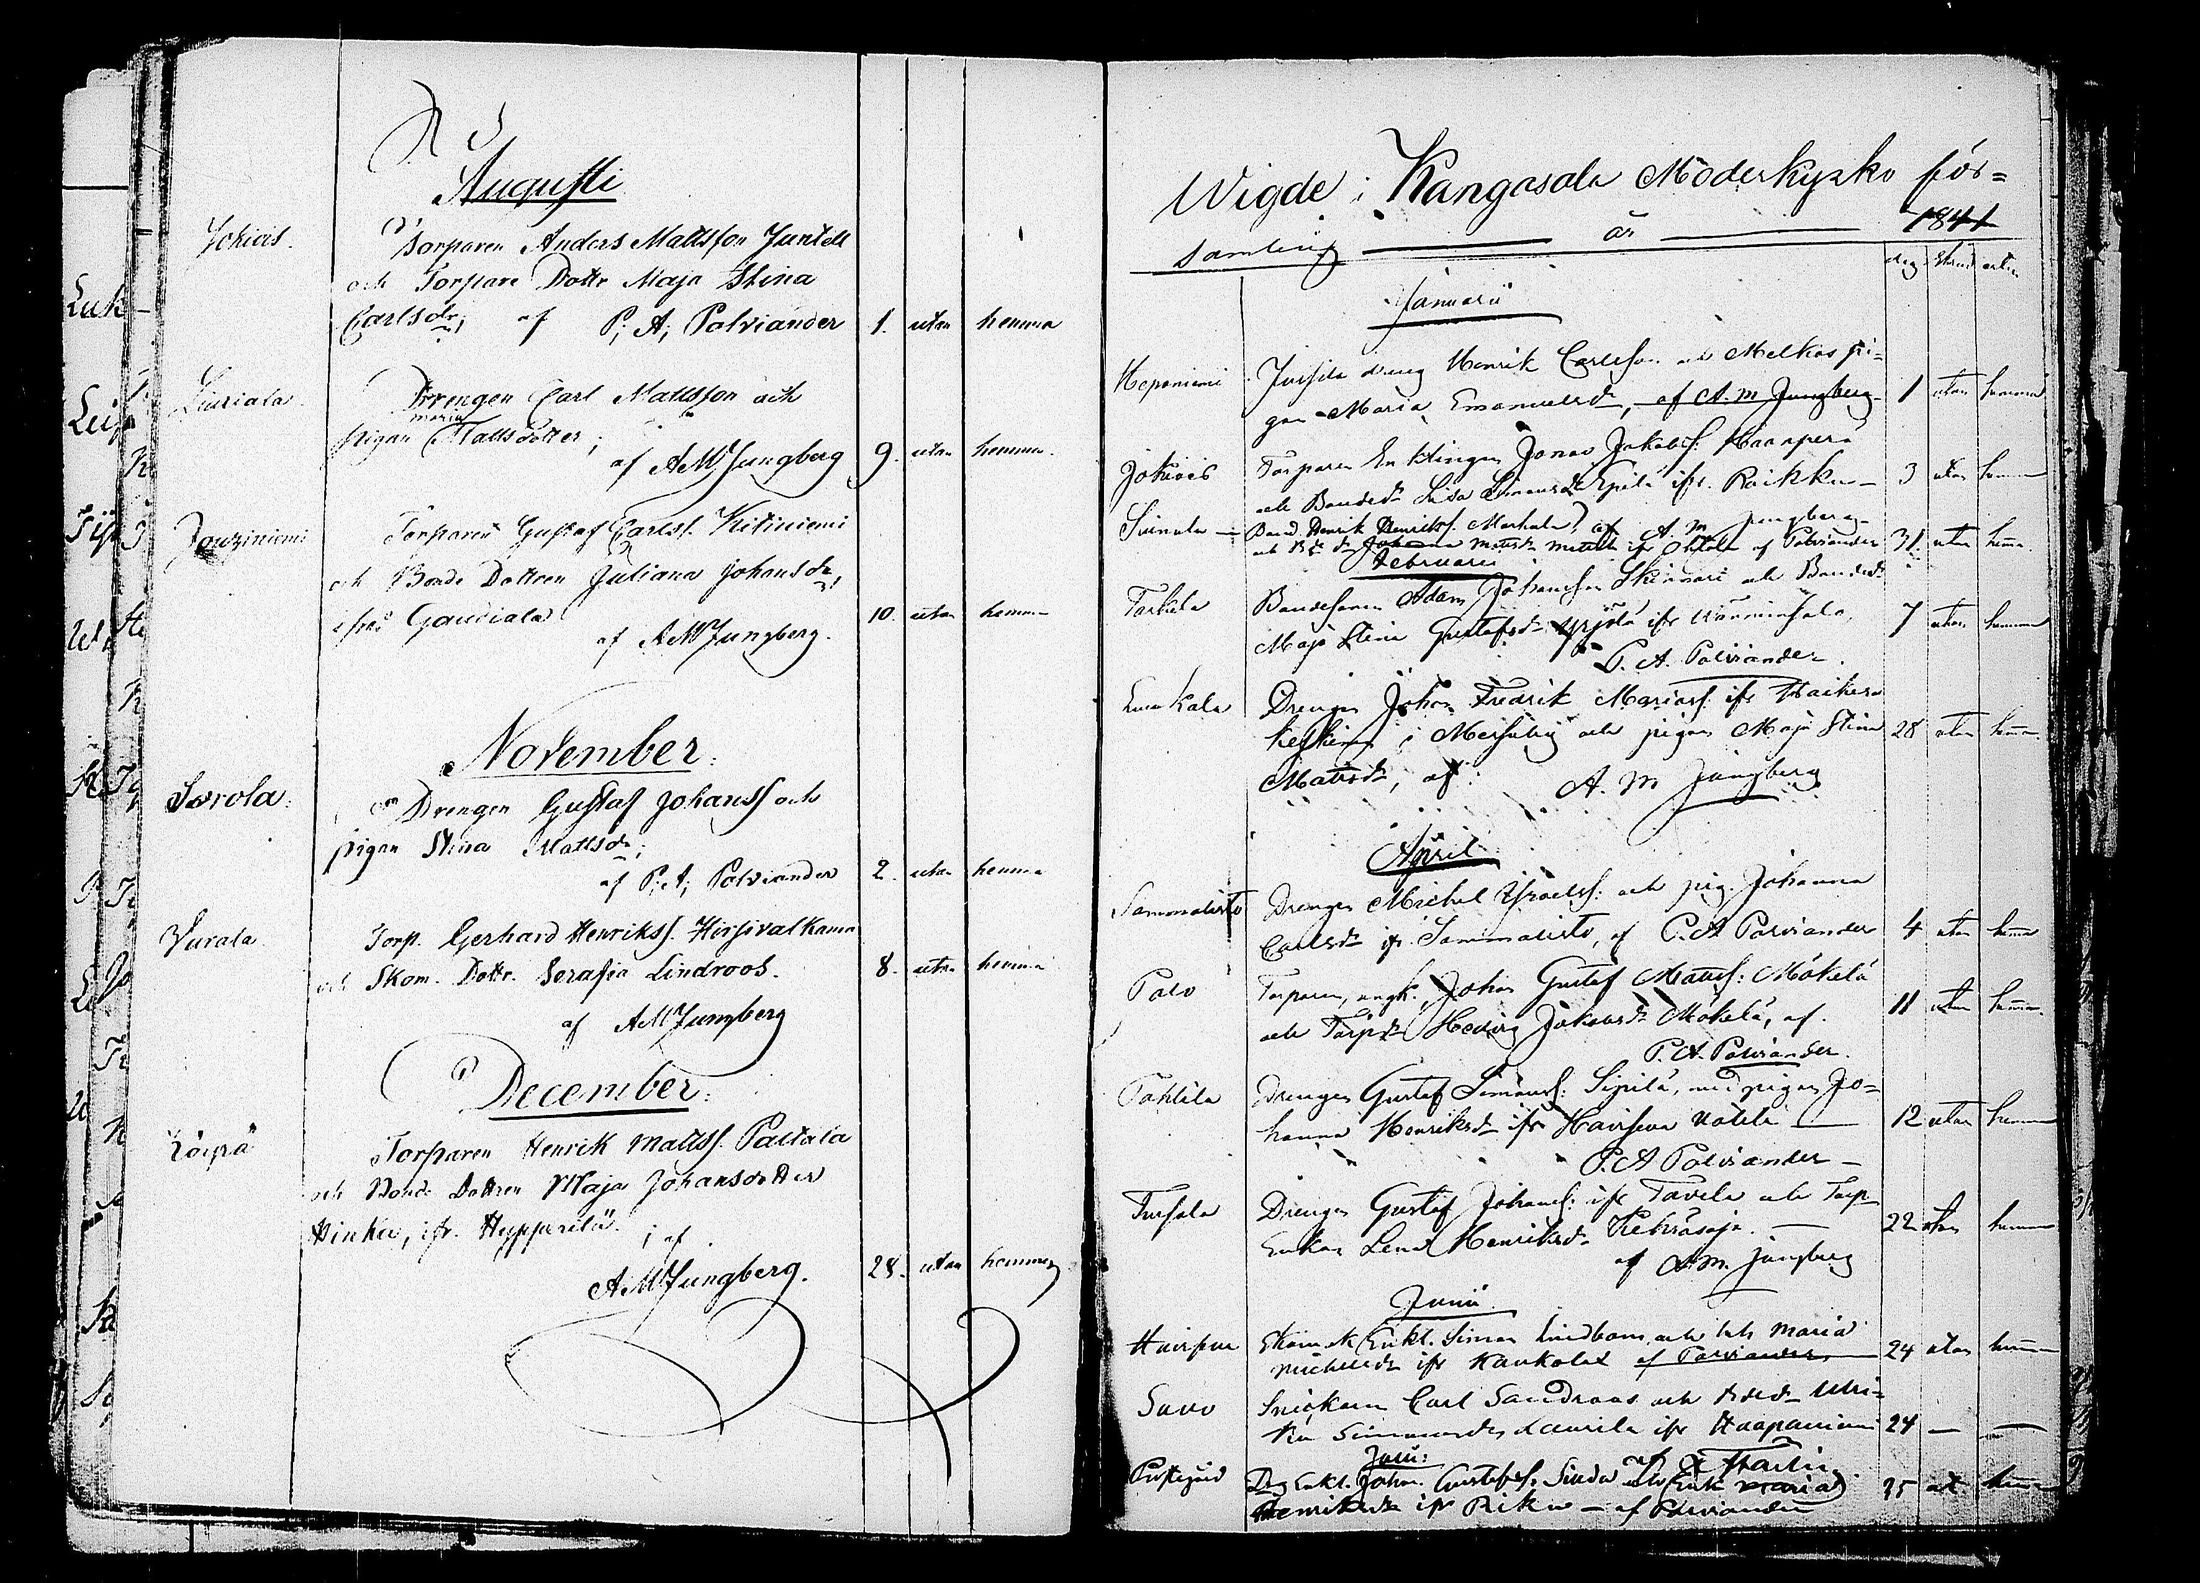 Augusti
Jokiois. Torparen Anders Mattsson Juntell
och Torpare Dottr Maja Stina
Carlsdr, af P. A. Polviander 1. utan hemma
Liuriala Drengen Carl Mattsson och
maria
pigan Mattsdotter;
af AMLjungberg 9. utan hemma.
Torparen Gustaf Carlss. Kitiniemi
och Bonde Dottren Juliana Johansdr,
ifrån Gaudiala
af AMLjungberg. 10. utan hemma
November.
Sorola. Drengen Gustaf Johanss och
pigan Stina Mattsdr;
af P. A. Polviander 2. utan hemma
Vurala Torp. Gerhard Henrikss. Hirsivalkama
och Skom. Dottr. Serafia Lindroos. 8. utan hemma
af AMLjungberg
December.
Löipä Torparen Henrik Mattss. Paltala
och Bonde Dottren Maja Johansdotter
Hinka, ifr. Hypperilä; af
AMLjungberg. 28. utan hemma
Wigde i Kangasala Moderkyrko för=
samling år 1841
dag
Januarii
Heponiemi Jussila dreng Henrik Carlsson och Melkas pi=
gan Maria Emanuelsdr, af A. M. Ljungberg 1 utan hemma
Jokiois Torparen Enklingen Jonas Jakobss. Haaperä
och Bondedr Lisa Simonsdr Epilä ifr. Raikku — 3 utan hemma
Suinula — Bond. Henrik Henrikss. Markula af A. M. Ljungberg
och Mattsdr ifr af Polviander 31. utan hemma.
Februarii
Tarkila Bondesonen Adam Johansson Skinnari och Bondedr
Maja Stina Gustafsdr Yrjölä ifr 7 utan hemma
P. A. Polviander.
Drengen Johan Fredrik Mariass. ifr
i och pigan Maja Stina 28 utan hemma
Mattsdr, af: A. M. Ljungberg
April
Sammalisto Drengen Michel Israelss. och pig. Johanna
Carlsdr ifr. Sammalisto, af P. A. Polviander 4 utan hemma
Palo Torparen, ungk., Johan Gustaf Mattss: Mäkelä
och Torpdr Hedvig Jakobsdr Mäkelä, af. 11 utan hemma.
P. A. Polviander.
Tahlila Drengen Gustaf Simonss: Sipilä, med pigan Jo=
hanna Henriksdr ifr Haviseva — 12 utan hemma
P. A. Polviander —
Tursola Drengen Gustaf Johanss: ifr Tavela och Torp
Enkan Lena Henriksdr — 22 utan hemma
af A. M. Ljungberg
Junii
Enkl. Simon Lindbom och Maria
Michelsdr ifr Kaukola af Polviander 24 utan hemma
Suvo Snickaren Carl Sandroos och Ulri=
ka Simonsdr Laurila ifr Haapaniemi 24 — —
Julii:
af
Prostgård Enkl. Johan Gustafss. Enk Maria
Henriksdr ifr Riku — af Polviander 25 hemma